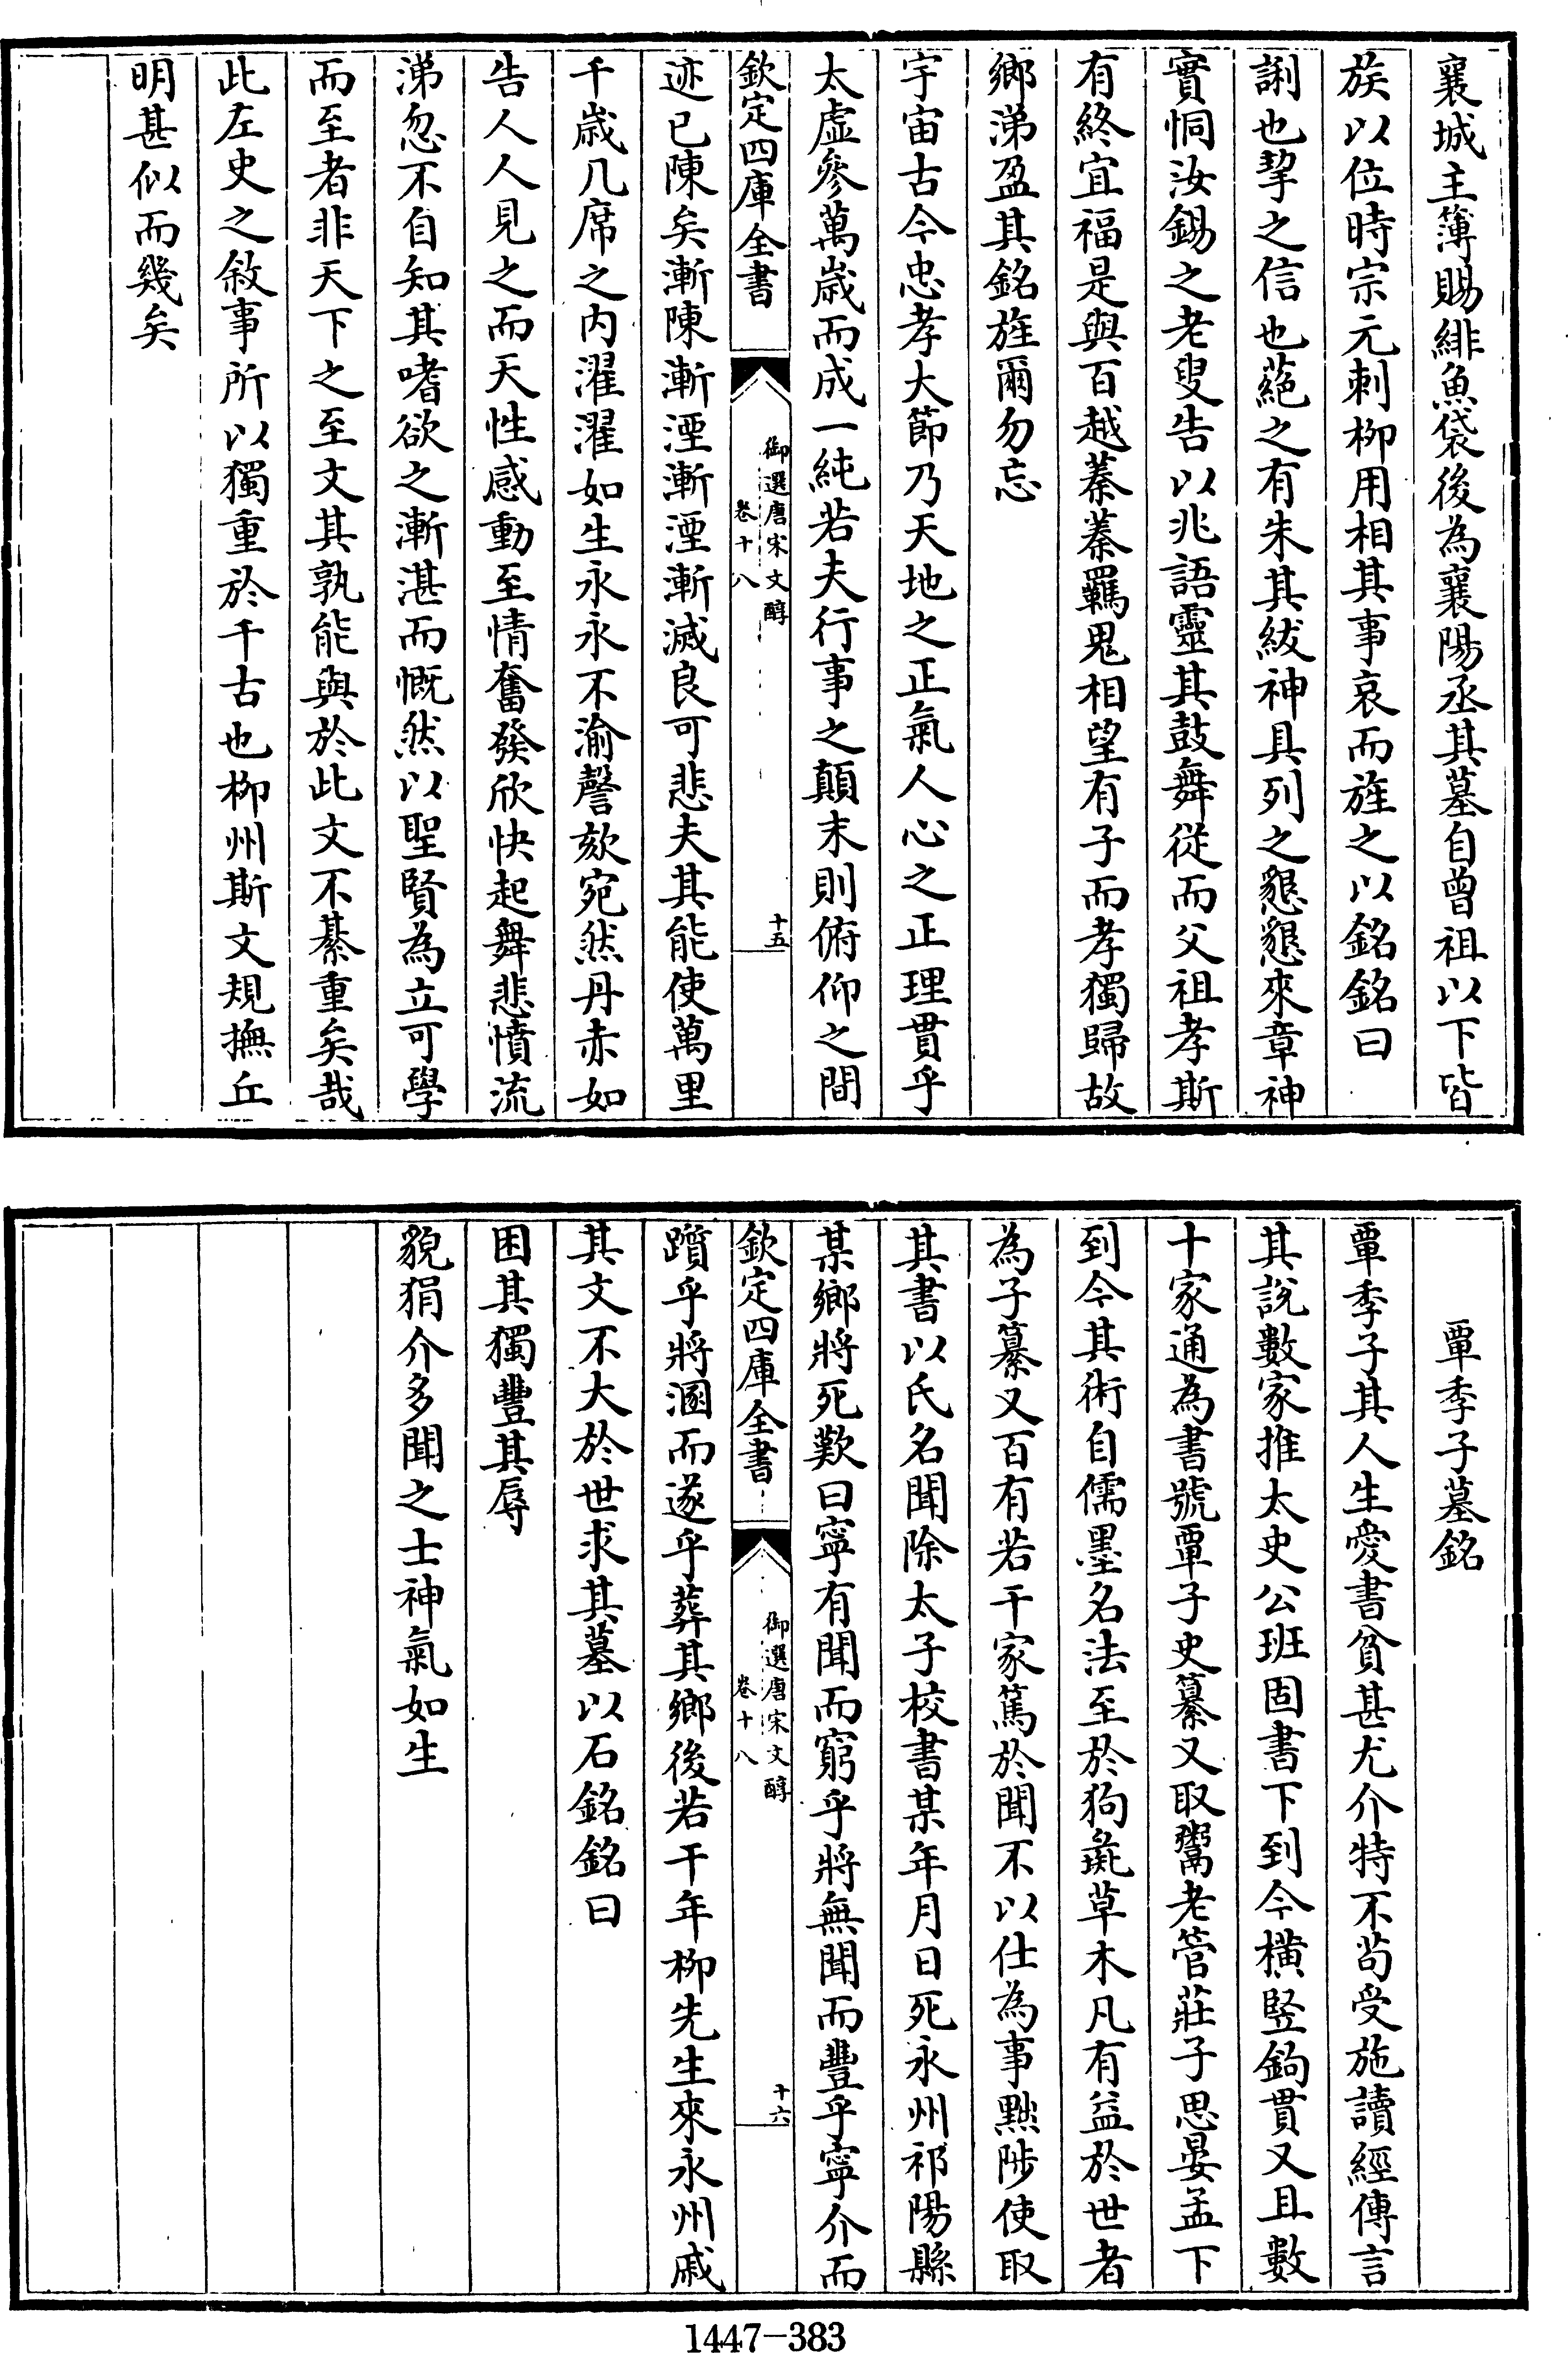 襄城主簿賜緋魚袋後為襄陽丞其墓自曾祖以下皆
族以位時宗元刺柳用相其事哀而旌之以銘銘曰
誗也挈之信也蕝之有朱其紱神具列之懇懇來章神
實恫汝錫之老叟告以兆語靈其鼓舞從而父祖孝斯
有終宜福是與百越蓁蓁羈鬼相望有子而孝獨歸故
鄉涕盈其銘旌爾勿忘
宇宙古今忠孝大節乃天地之正氣人心之正理貫乎
太虛參萬歲而成一純若夫行事之顛末則俯仰之間
欽定四庫全書
御選唐宋文醇
卷十八
十五
迹已陳矣漸陳漸湮漸湮漸滅良可悲夫其能使萬里
千歲几席之内濯濯如生永永不渝謦欬宛然丹赤如
告人人見之而天性感動至情奮發欣快起舞悲憤流
涕忽不自知其嗜欲之漸湛而慨然以聖賢為立可學
而至者非天下之至文其孰能與於此文不綦重矣哉
此左史之敘事所以獨重於千古也柳州斯文規撫丘
明甚似而幾矣
覃季子墓銘
覃季子其人生愛書貧甚尤介特不茍受施讀經傳言
其說數家推太史公班固書下到今橫竪鉤貫又且數
十家通為書號覃子史纂又取鬻老管莊子思晏孟下
到今其術自儒墨名法至於狗彘草木凡有益於世者
為子纂又百有若干家篤於聞不以仕為事黜陟使取
其書以氏名聞除太子校書某年月日死永州祁陽縣
某鄉將死歎曰寧有聞而窮乎將無聞而豐乎寧介而
欽定四庫全書
御選唐宋文醇
卷十八
十六
躓乎將溷而遂乎葬其鄉後若干年柳先生來永州戚
其文不大於世求其墓以石銘銘曰
困其獨豐其辱
貌狷介多聞之士神氣如生
1447-383